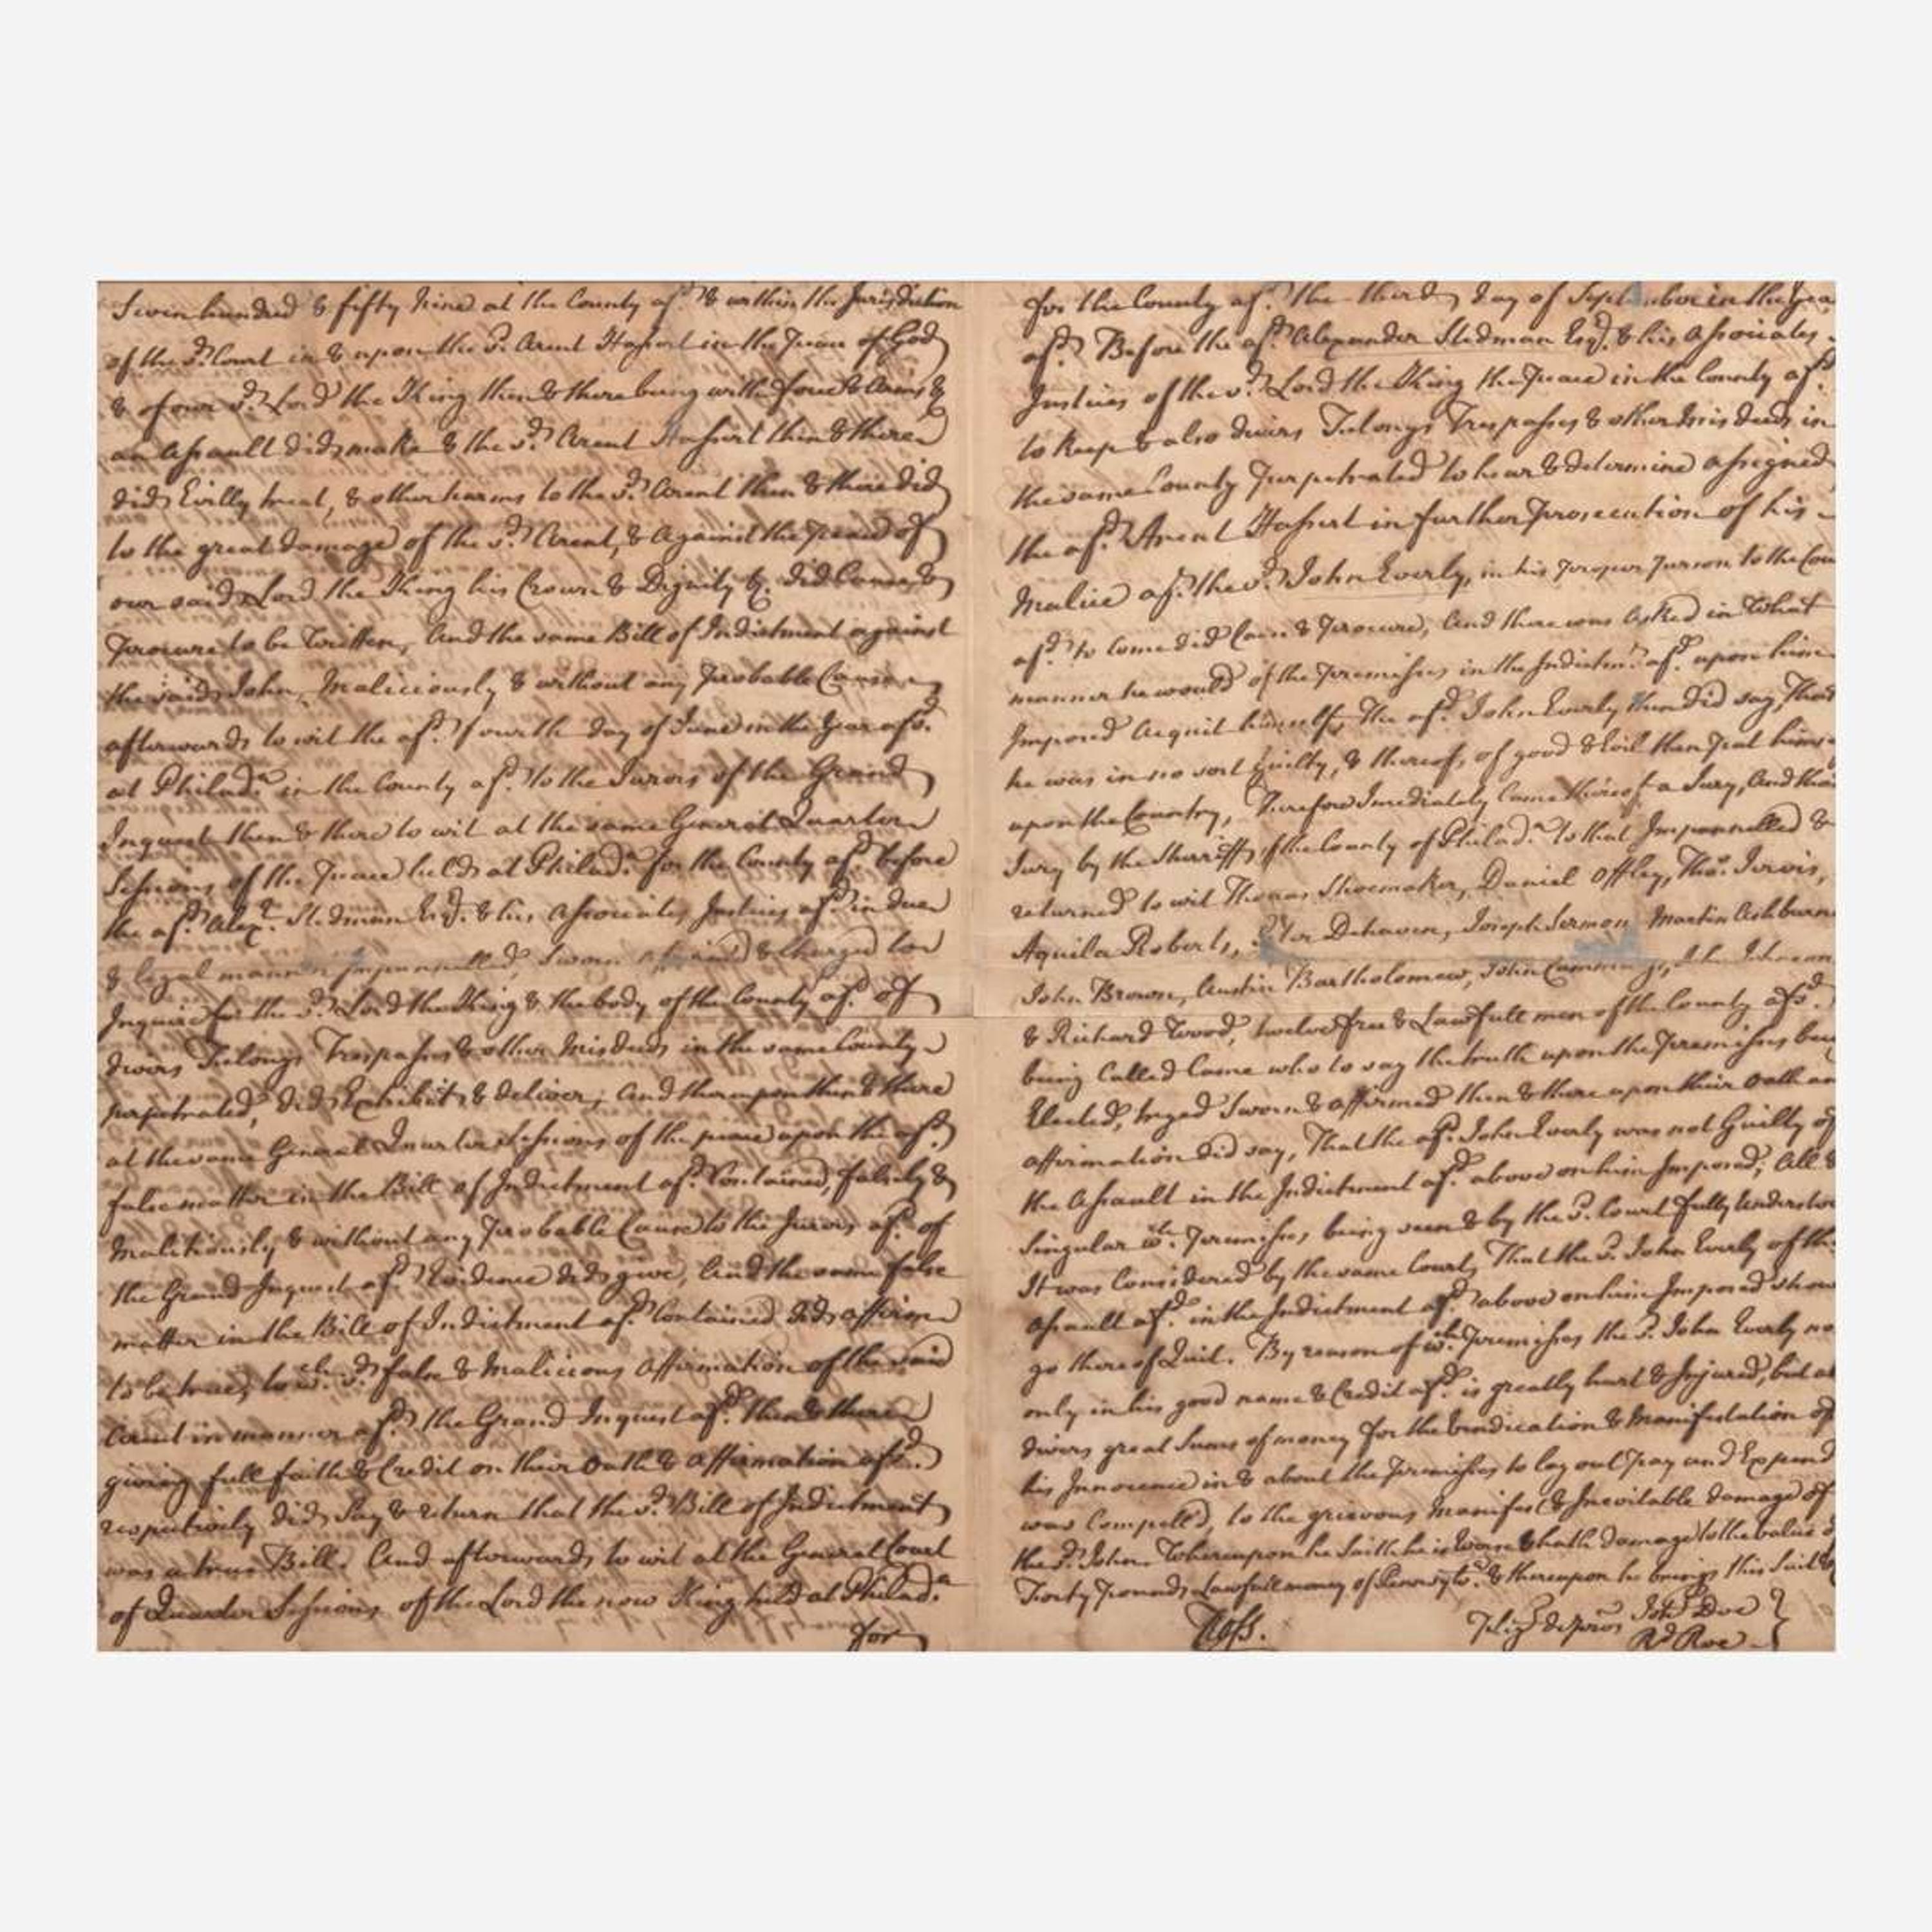 Seven hundred & fifty Nine at the County afd. & within the Jurisdiction
of the sd. Court in & upon the sd. Arent Hassert in the Peace of God
& of our sd. Lord the King then & there being with force & Arms &
an Assault did make & the sd. Arent Hassert then & there
did Evilly treat, & other harms to the sd. Arent then & there did
to the great damage of the sd. Arent, & Against the peace of
our said Lord the King his Crown & Dignity &c. did Cause &
Procure to be Written, And the same Bill of Indictment against
the said John, Maliciously & without any Probable Cause
afterwards to wit the afd. fourth day of June in the Year afsd.
at Philada. in the County afd. to the Jurors of the Grand
Inquest then & there to wit at the same General Quarter
Sessions of the Peace held at Philada. for the County afd. before
the afd. Alexr. Stedman Esqr. & his Associates Justices afd. in due
& legal manner Impannelled, Sworn & charged to
Inquire for the sd. Lord the King & the body of the County afd. of
divers Felonys Trespasses & other Misdeeds in the same County
perpetrated, did Exhibit & deliver, And thereupon then & there
at the same General Quarter Sessions of the peace upon the afd.
false matter in the Bill of Indictment afd. Contained, falsely &
Malitiously & without any Probable Cause to the Jurors afd. of
the Grand Inquest afd. Evidence did give, And the same false
matter in the Bill of Indictment afd. Contained did affirm
to be true, to wch. sd. false & Malicious Affirmation of the said
Arent in manner afd. the Grand Inquest afd. then & there
giving full faith & Credit on their Oath & Affirmation afsd.
respectively did Say & return that the sd. Bill of Indictment
was a true Bill. And afterwards to wit at the General Court
of Quarter Sessions of the Lord the now King held at Philada.
for
for the County afd. the third day of September in the Yea
afd. Before the afd. Alexander Stedman Esqr. & his Associates
Justices of the sd. Lord the King the Peace in the County afd.
to keep & also divers Felonys Trespasses & other Misdeeds in
the same County Perpetrated to hear & determine assigned
the afd. Arent Hassert in further Prosecution of his
Malice afd. the sd. John Everly, in his proper Person to the Cou
afd. to come did Cause & Procure, And there was Asked in What
manner he would of the Premisses in the Indictmt. afd. upon him
Imposed Acquit himself, The afd. John Everly then did say, That
he was in no sort Guilty, & thereof, of good & Evil then put hims
upon the Country, Therefore Imediately Came thereof a Jury, And the
Jury by the Sherriff of the County of Philada. to that Impannelled &
returned to wit Thomas Shoemaker, Daniel Offley, Thos. Jervis,
Aquila Roberts, Peter Dehaven, Joseph Sermon Martin Ashburn
John Brown, Austin Bartholomew, John Cummings, John Johnson
& Richard Wood, twelve free & Lawfull men of the County afsd.
being Called Came who to say the truth upon the Premisses bei
Elected, tryed Sworn & affirmed then & there upon their Oath an
affirmation did say, That the afd. John Everly was not Guilty of
the Assault in the Indictment afd. above on him Imposed, All &
Singular wch. Premisses, being seen & by the sd. Court fully Understoo
It was Considered by the same Court, That the sd. John Everly of the
Assault afd. in the Indictment afd. above on him Imposed shou
go thereof Quit. By reason of wch. Premisses the sd. John Everly no
only in his good name & Credit afd. is greatly hurt & Injured, but al
divers great Sums of money for the Vindication & Manifestation of
his Innocence in & about the Premisses to lay out Pay and Expend
was Compell'd, to the grievous Manifest & Inevitable damage of
the sd. John. Whereupon he Saith he is Worse & hath damage to the value o
Forty Pounds Lawfull money of Pennsylva. & thereupon he brings this Suit &
Ross.
Jno. Doe
Pledgs. de pros
Rd. Roe